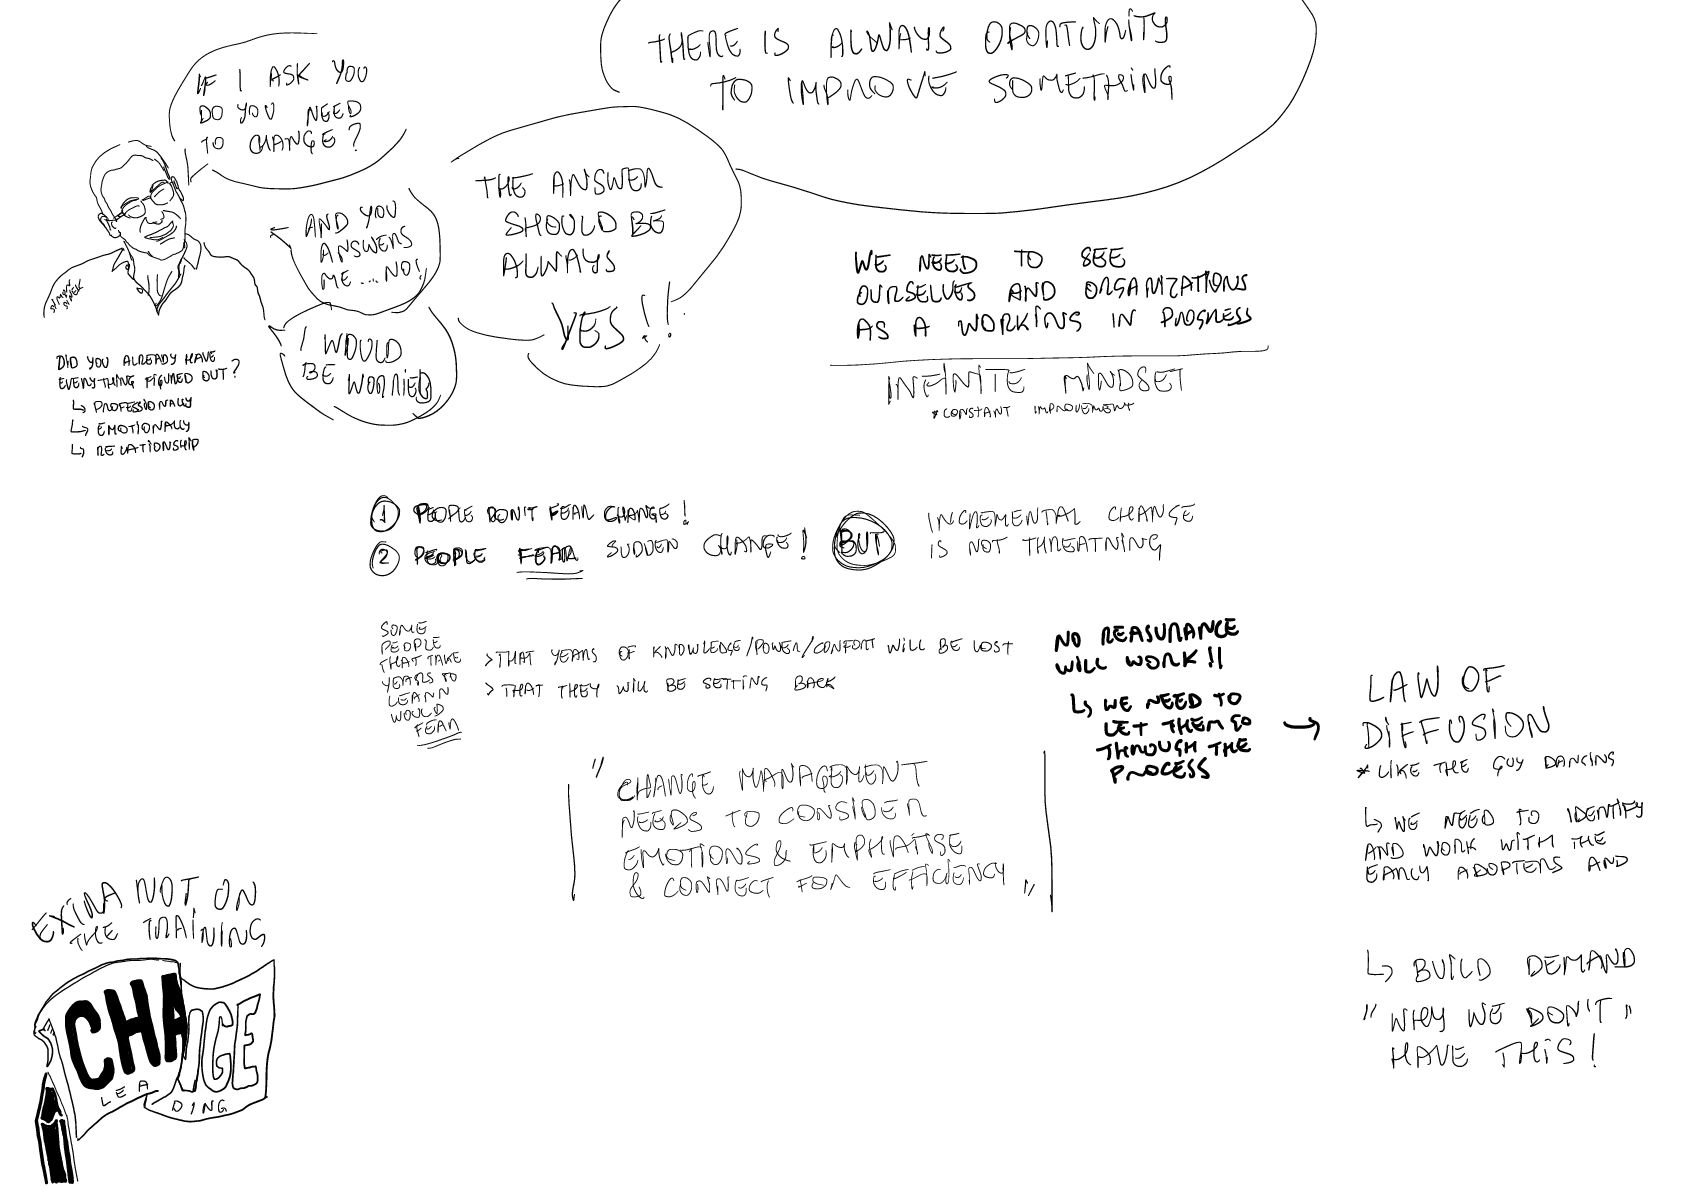 THERE IS ALWAYS OPORTUNITY
TO IMPROVE SOMETHING
IF I ASK YOU
DO YOU NEED
TO CHANGE?
AND YOU
ANSWERS
ME ... NO!
I WOULD
BE WORRIED
THE ANSWER
SHOULD BE
ALWAYS
YES!!
SIMON
SINEK
DID YOU ALREADY HAVE
EVERYTHING FIGURED OUT?
↳ PROFESSIONALLY
↳ EMOTIONALLY
↳ RELATIONSHIP
WE NEED TO SEE
OURSELVES AND ORGANIZATIONS
AS A WORKING IN PROGRESS
INFINITE MINDSET
* CONSTANT IMPROVEMENT
1 PEOPLE DON'T FEAR CHANGE!
2 PEOPLE FEAR SUDDEN CHANGE! BUT
INCREMENTAL CHANGE
IS NOT THREATNING
SOME
PEOPLE
THAT TAKE
YEARS TO
LEARN
WOULD
FEAR
> THAT YEARS OF KNOWLEDGE/POWER/CONFORT WILL BE LOST
> THAT THEY WILL BE SETTING BACK
NO REASURANCE
WILL WORK!!
↳ WE NEED TO
LET THEM GO
THROUGH THE
PROCESS
→ LAW OF
DIFFUSION
* LIKE THE GUY DANCING
↳ WE NEED TO IDENTIFY
AND WORK WITH THE
EARLY ADOPTERS AND
↳ BUILD DEMAND
"WHY WE DON'T"
HAVE THIS!
"CHANGE MANAGEMENT
NEEDS TO CONSIDER
EMOTIONS & EMPHATISE
& CONNECT FOR EFFICIENCY"
EXTRA NOT ON
THE TRAINING
CHANGE
LEADING